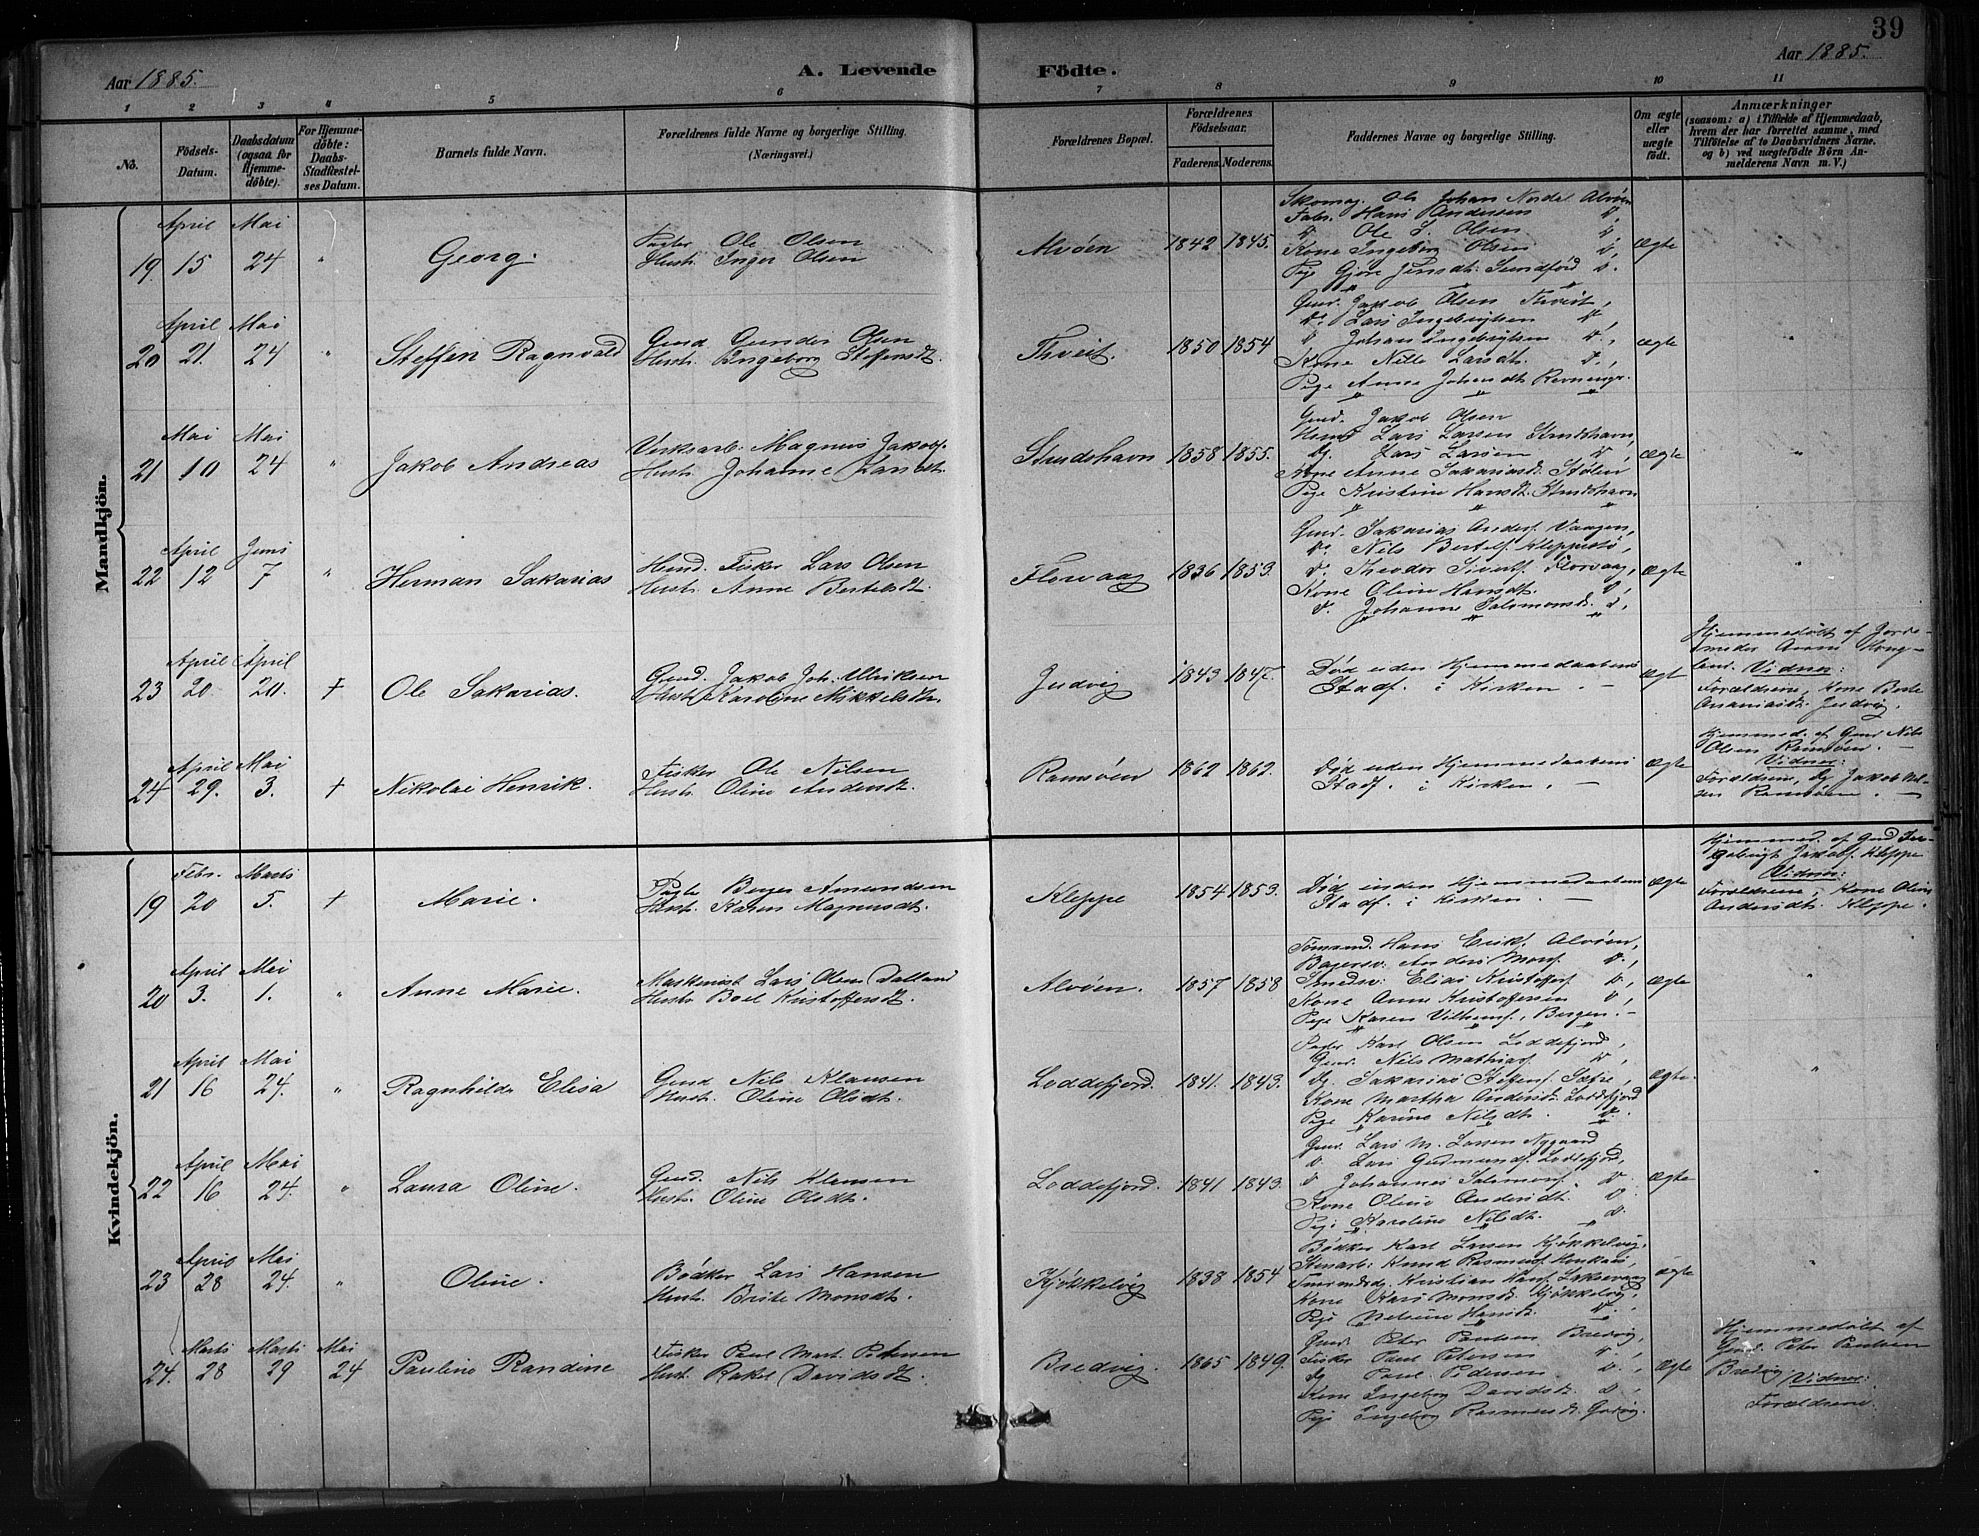 39
Aar 1885.
A. Levende Födte.
Aar 1885.
1 2 3 4 5 6 7 8 9 10 11
No.
Födsels-Datum.
Daabsdatum (ogsaa for Hjemme-döbte).
For Hjemme-döbte: Daabs-Stadfæstel-ses Datum.
Barnets fulde Navn.
Forældrenes fulde Navne og borgerlige Stilling. (Næringsvei.)
Forældrenes Bopæl.
Forældrenes Födselsaar.
Faderens. Moderens.
Faddernes Navne og borgerlige Stilling.
Om ægte eller uægte födt.
Anmærkninger
(saasom: a) i Tilfælde af Hjemmedaab,
hvem der har forrettet samme, med
Tilföielse af to Daabsvidners Navne.
og b) ved uægtefödte Börn An-
melderens Navn m. V.)
Mandkjön.
April Mai
19. 15 24 " Georg.
Ole Olsen
Hustr. Inger Olsen
Alvøen 1842 1845.
Skomag. Ole Johan Alvøen
Fabr. Hans Andersen D.
D Ole S. Olsen D
Kone Ingeborg Olsen D.
Pige
Ægte
April Mai
20 21. 24 " Steffen Ragnvald
Gmd Gunder Olsen
Hustr. Ingeborg Steffensdt.
Thveit. 1850 1854
Gmd. Jakob Olsen Thveit,
Do. Lars Ingebrigtsen D.,
D Johan Ingebrigtsen D.,
Kone Nille Larsdt. D.,
Pige Anna Johansdt.
Ægte
Mai Mai
21 10 24 " Jakob Andreas
Verksarb. Magnus Jakobs.
Hustr. Johanne Larsdt.
Strudshavn 1858 1855.
Gmd. Jakob Olsen
Lars Larsen Strudshavn,
Lars Larsen D,
Kone Anne Sakariasdt. Stølen
Pige Kristine Hansdt. Strudshavn
Ægte "
April Juni
22 12 7 " Herman Sakarias
Fisker Lars Olsen
Hustr. Anne Bertelsdt.
Florvaag 1836 1853.
Gmd. Sakarias Anders. Vaagen,
Do. Nils Bertels. Kleppestø,
D. Theodor Siverts. Florvaag,
Kone Oline Hansdt. D,
D. Johanne Salomonsd. D,
Ægte "
April April
23 20. 20. + Ole Sakarias.
Gmd. Jakob Joh. Ulriksen
Hustr. Karoline Mikkelsdtr.
1843 1847.
Død uden Hjemmedaabens
Stadf. i Kirken. —
Ægte
Hjemmedøbt af Jorde-
moder
Vidner:
Forældrene, Kone
April Mai
24 29. 3. + Nikolai Henrik.
Fisker Ole Nilsen
Hustr. Oline Andersdt.
Ramsøen 1862 1862.
Død uden Hjemmedaabens
Stadf. i Kirken. —
Ægte
Hjemmed. af Gmd Nils
Olsen Ramsøen. —
Vidner:
Forældrene, Jakob Nil-
sen Ramsøen. —
Kvindekjön.
Febr. Marts
19 20 5. + Marie.
Amundsen
Hustr. Karen Magnusdt.
Kleppe 1854 1853.
Død inden Hjemmedaabens
Stadf. i Kirken. —
Ægte
Hjemmed. af Gmd In-
gebrigt Jakobs. Kleppe
Vidner:
Forældrene, Kone Oline
Andersdt. Kleppe.
April Mai
20 3. 1. " Anne Marie.
Maskinist Lars Olsen Dalland
Hustr. Boel Kristoffersdt.
Alvøen. 1857 1858
Hans Erik. Alvøen,
Anders Mons. D.,
Smedsv. Elias Kristoffers. D,
Kone Anne Kristoffersen D,
Pige Karen Vilhems., Bergen.
Ægte "
April Mai
21 16 24. " Ragnhilde Elisa
Gmd Nils Klausen
Hustr. Oline Olsdt.
Loddefjord. 1841. 1843.
Karl Olsen Loddefjord,
Gmd. Nils Mathias. D,
Sakarias Steffens. Sætre,
Kone Martha Andersdt. Loddefjord
Pige Karine Nilsdt. D.
Ægte. "
April Mai
22 16 24. " Laura Oline.
Gmd. Nils Klausen
Hustr. Oline Olsdt.
Loddefjord. 1841 1843.
Gmd. Lars M. Larsen Nygaard
D. Lars Gudmunds. Loddefjord,
D Johannes Salomons. D.
Kone Oline Andersdt. D.
Pige Karoline Nilsdt. D.
Ægte "
April Mai
23 28 24. " Oline.
Bødker Lars Hansen
Hustr. Brite Monsdt.
Kjøkkelvig 1838 1854
Bødker Karl Larsen Kjøkkelvig,
Knud Rasmus.
Kristian Hans. Laksevaag
Kone Kari Monsd. Kjøkkelvig,
Pige Hansdt. D.
Ægte "
Marts Marts Mai
24. 28 29 24 Pauline Randine
Fisker Paul Mart. Petersen
Hustr. Rakel Davidsdt.
Bredvig. 1865 1849.
Gmd. Peter Paulsen Bredvig,
Fisker Paul Petersen D,
Paul Pedersen D.,
Kone Ingeborg Davidsdt. D,
Pige Ingeborg Rasmusdt.
Ægte
Hjemmedøbt af
Gmd. Peter Paulsen
Bredvig Vidner:
Forældrene.